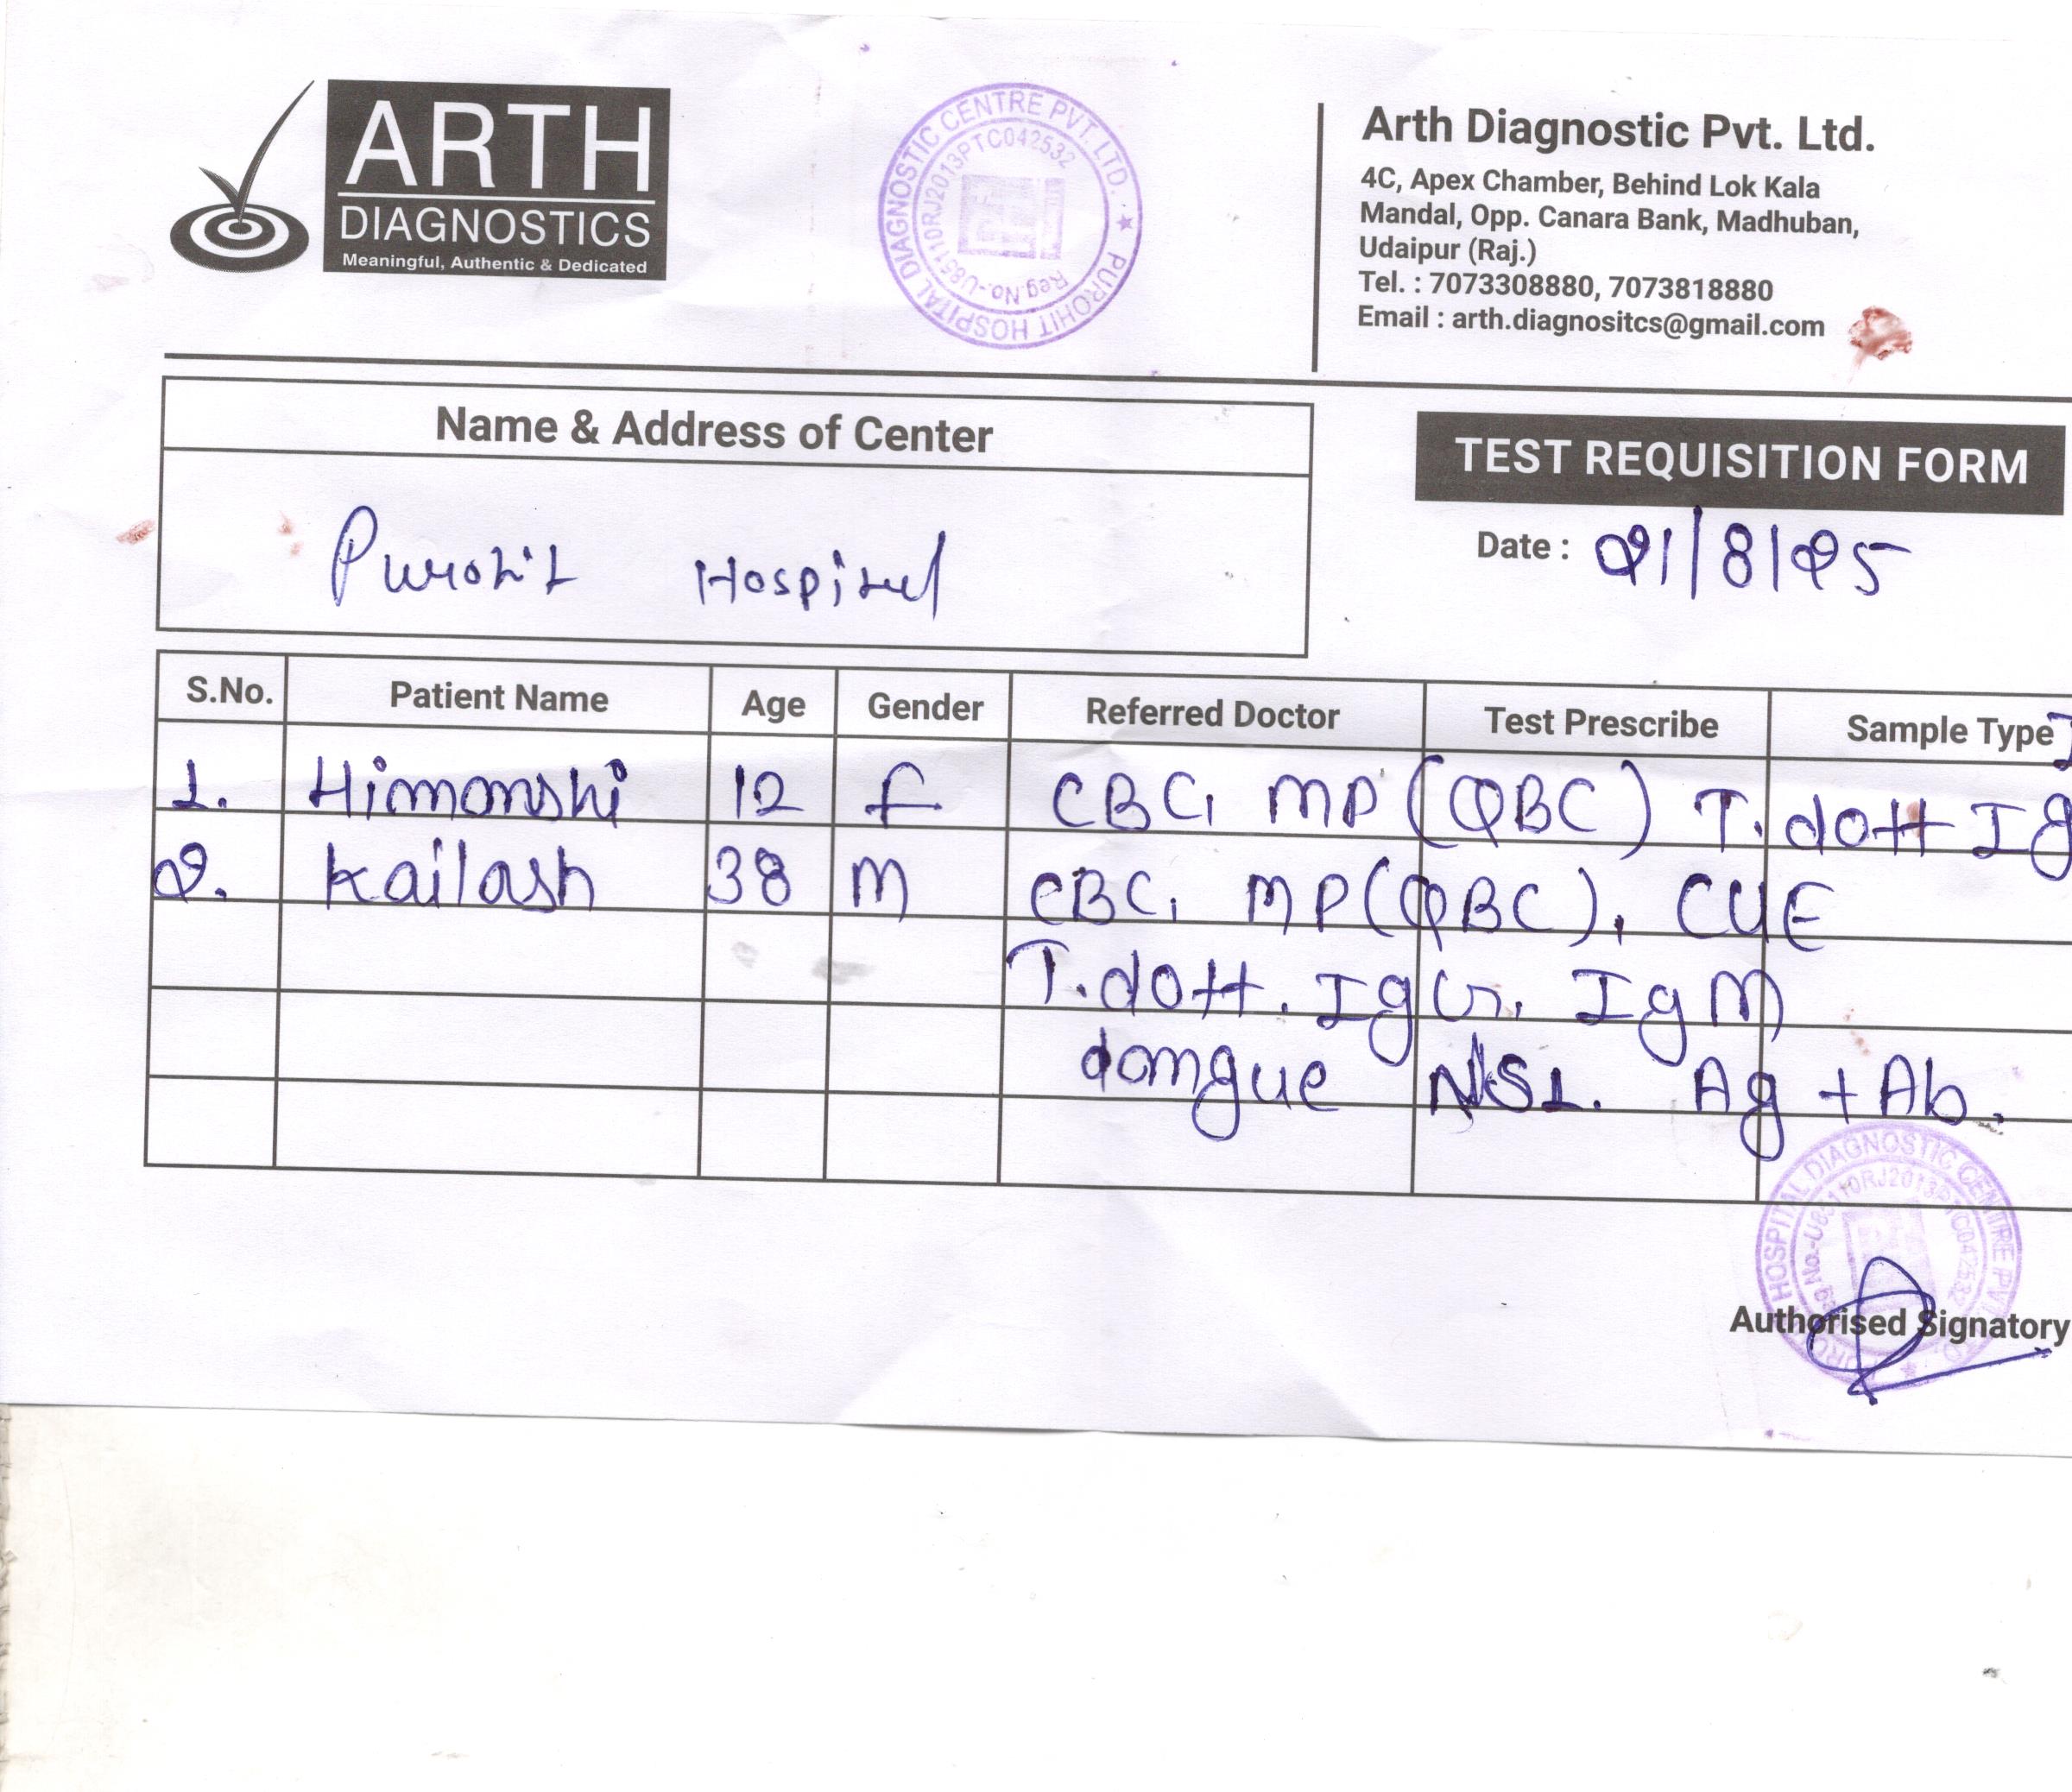 ARTH
DIAGNOSTICS
Meaningful, Authentic & Dedicated
PUROHIT HOSPITAL DIAGNOSTIC CENTRE PVT. LTD. ★
Reg.No.-U85110RJ2013PTC042532
Arth Diagnostic Pvt. Ltd.
4C, Apex Chamber, Behind Lok Kala
Mandal, Opp. Canara Bank, Madhuban,
Udaipur (Raj.)
Tel. : 7073308880, 7073818880
Email : arth.diagnositcs@gmail.com
Name & Address of Center
Purohit Hospital
TEST REQUISITION FORM
Date : 21/8/25
S.No. Patient Name Age Gender Referred Doctor Test Prescribe Sample Type
1. Himanshi 12 f CBC, MP (QBC) T. dott Ig
2. Kailash 38 M CBC, MP(QBC), CUE
T. dott. IgG, IgM
dangue NS1. Ag + Ab.
HOSPITAL DIAGNOSTIC CENTRE PVT.
No.-U85110RJ2013PTC042532
Authorised Signatory